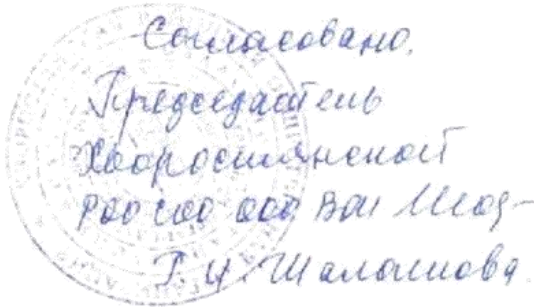 Согласовано.
Председатель
Хворостянской
РОО СОО ООО ВОИ
Г. И. Шалашова